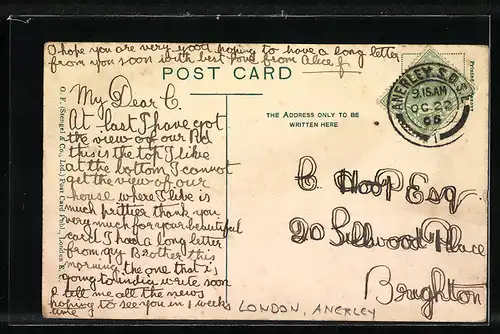 I hope you are very good hoping to have a long letter
from you soon with best love from Alice
POST CARD
THE ADDRESS ONLY TO BE
WRITTEN HERE
ANERLEY. S.O. S.E.
9.15 AM
OC 22
06
1
My Dear C.
At last I have got
the view of our Rd
this is the top I like
at the bottom I cannot
get the view of our
house where I like is
much prettier thank you
very much for your beautiful
card I had a long letter
from my Brother this
morning the one that is
going to india write soon
& tell me all the news
hoping to see you in 2 weeks
time
C. Hoop Esq
20 Sillwood Place
Brighton
LONDON, ANERLEY
O. F. (Stengel & Co., Ltd.) Post Card Publ., London E.